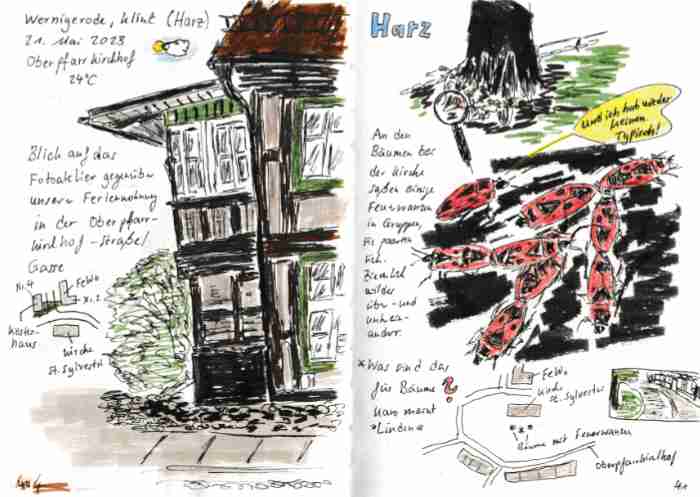 Wernigerode, Klint (Harz)
21. Mai 2023
Oberpfarrkirchhof
24°C
Blick auf das
Fotoatelier gegenüber
unserer Ferienwohnung
in der Oberpfarr-
kirchhof-straße/
Gasse
Nr. 4
FeWo
Nr. 2
haus
Kirche
St. Sylvestri
Harz
Und ich hab wieder
keinen.
Typisch!
An den
Bäumen bei
der Kirche
saßen einige
Feuerwanzen
in Gruppen.
Sie paarten
sich.
Ziemlich
wildes
über- und
unterein-
ander.
*Was sind das
für Bäume?
*Linden
FeWo
Kirche
St. Sylvestri
Bäume mit Feuerwanzen
Oberpfarrkirchhof
41